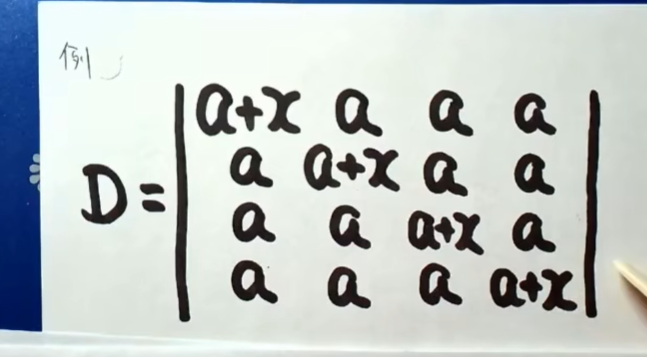 例
a+x a a a
a a+x a a
D=
a a a+x a
a a a a+x